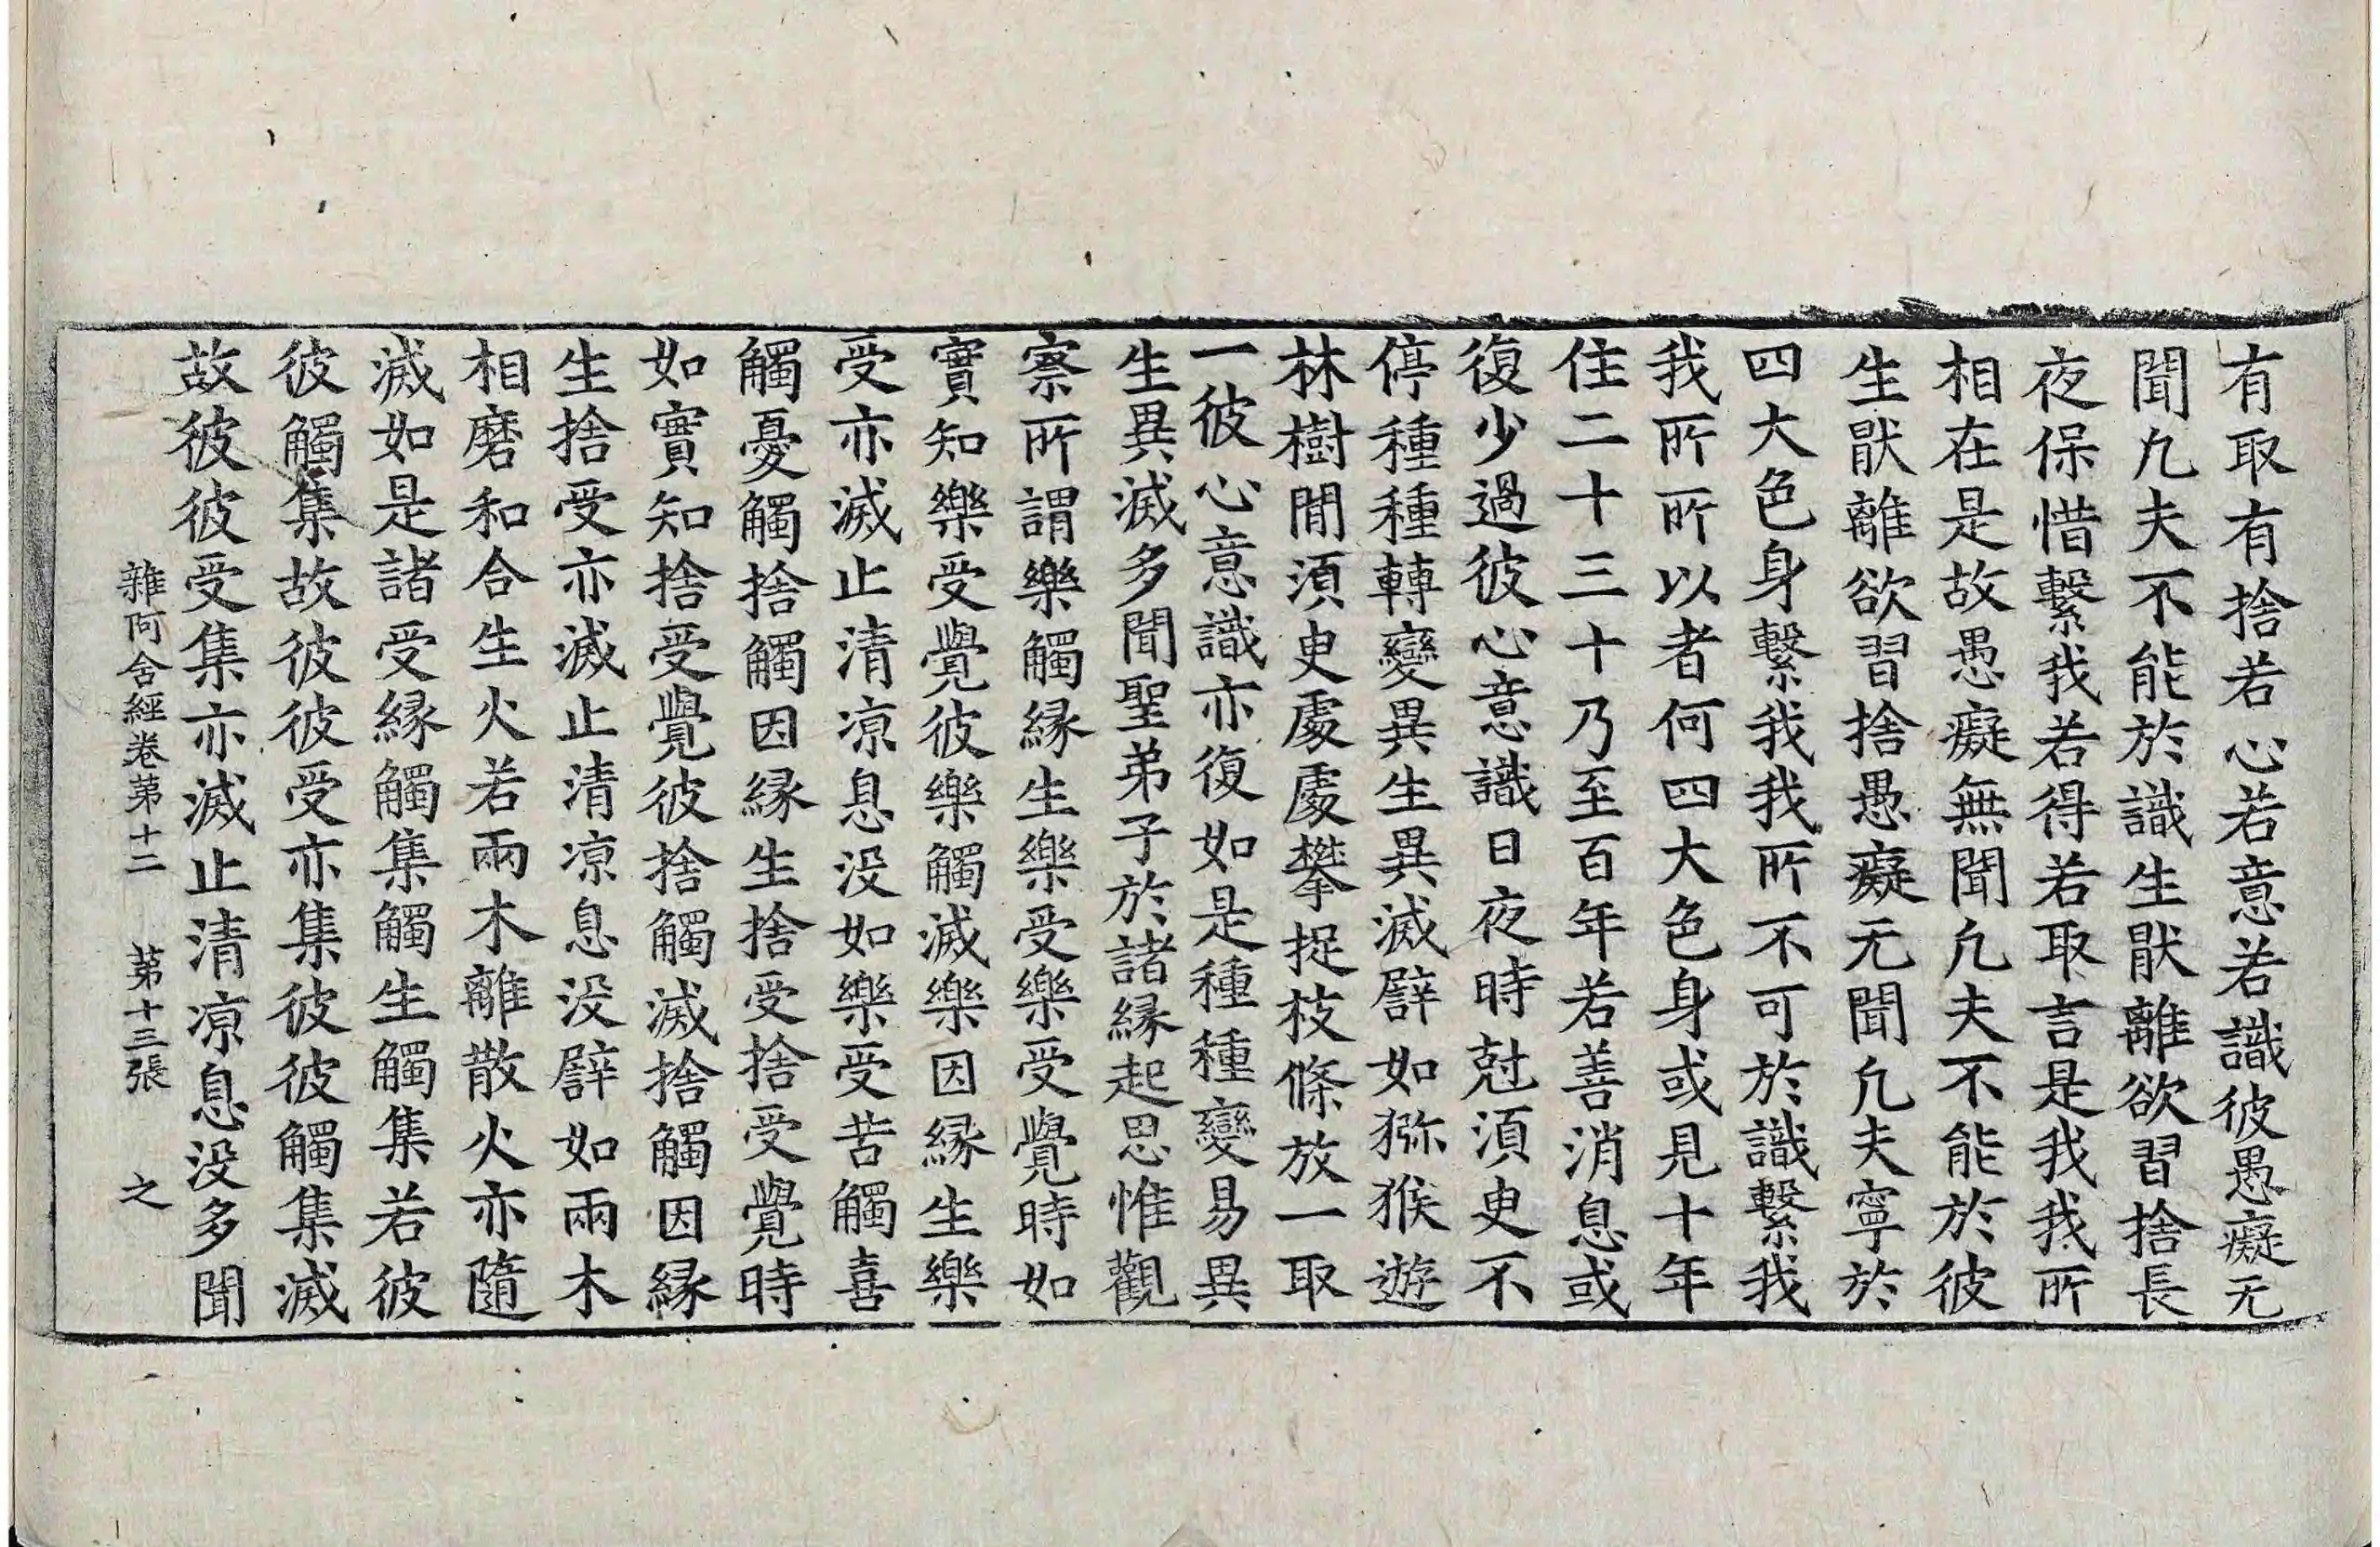 有取有捨若心若意若識彼愚癡无
聞凢夫不能於識生猒離欲習捨長
夜保惜繫我若得若取言是我我所
相在是故愚癡無聞凢夫不能於彼
生猒離欲習捨愚癡无聞凢夫寧於
四大色身繫我我所不可於識繫我
我所所以者何四大色身或見十年
住二十三十乃至百年若善消息或
復少過彼心意識日夜時尅須臾不
停種種轉變異生異滅譬如猕猴遊
林樹閒須臾處處攀捉枝條放一取
一彼心意識亦復如是種種變易異
生異滅多聞聖弟子於諸緣起思惟觀
察所謂樂觸緣生樂受樂受覺時如
實知樂受覺彼樂觸滅樂因緣生樂
受亦滅止清凉息没如樂受苦觸喜
觸憂觸捨觸因緣生捨受捨受覺時
如實知捨受覺彼捨觸滅捨觸因緣
生捨受亦滅止清凉息没譬如兩木
相磨和合生火若兩木離散火亦隨
滅如是諸受緣觸集觸生觸集若彼
彼觸集故彼彼受亦集彼彼觸集滅
故彼彼受集亦滅止清凉息没多聞
雜阿含經卷苐十二 苐十三張 之